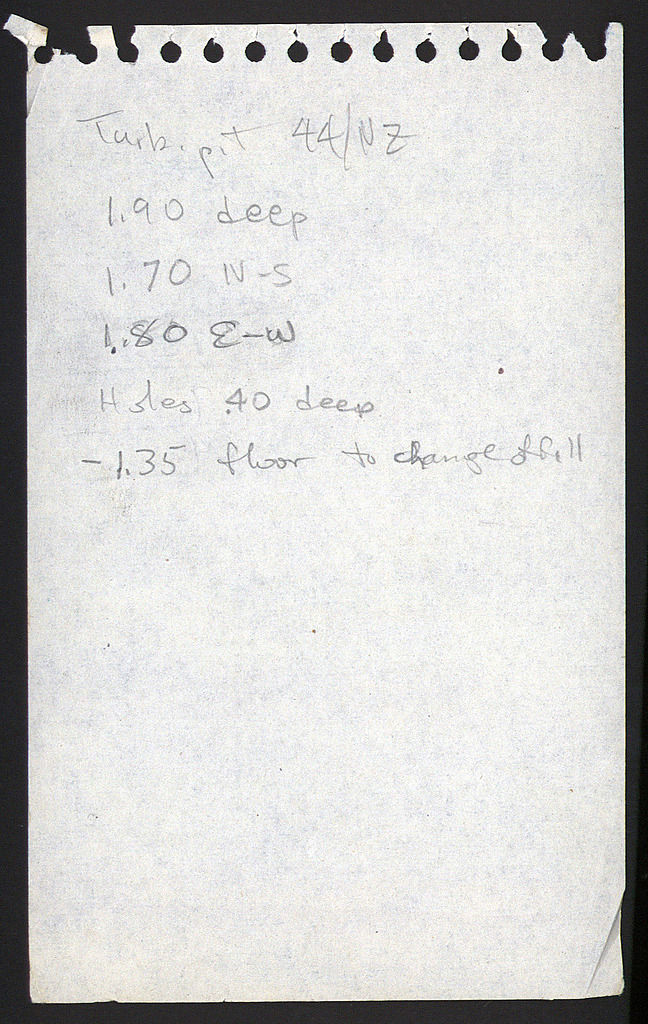 Turk. pit 44/NZ
1.90 deep
1.70 N-S
1.80 E-W
Holes .40 deep
- 1.35 floor to change of fill